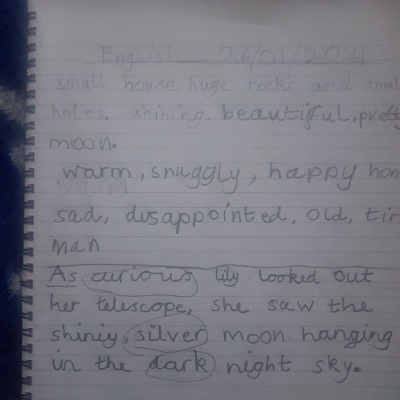 English 26/01/2021
small house, huge rocks and small
holes. shining, beautiful, pretty
moon.
warm, snuggly, happy hom
sad, disappointed, old, tir
man
As curious lily looked out
her telescope, she saw the
shiniy, silver moon hanging
in the dark night sky.